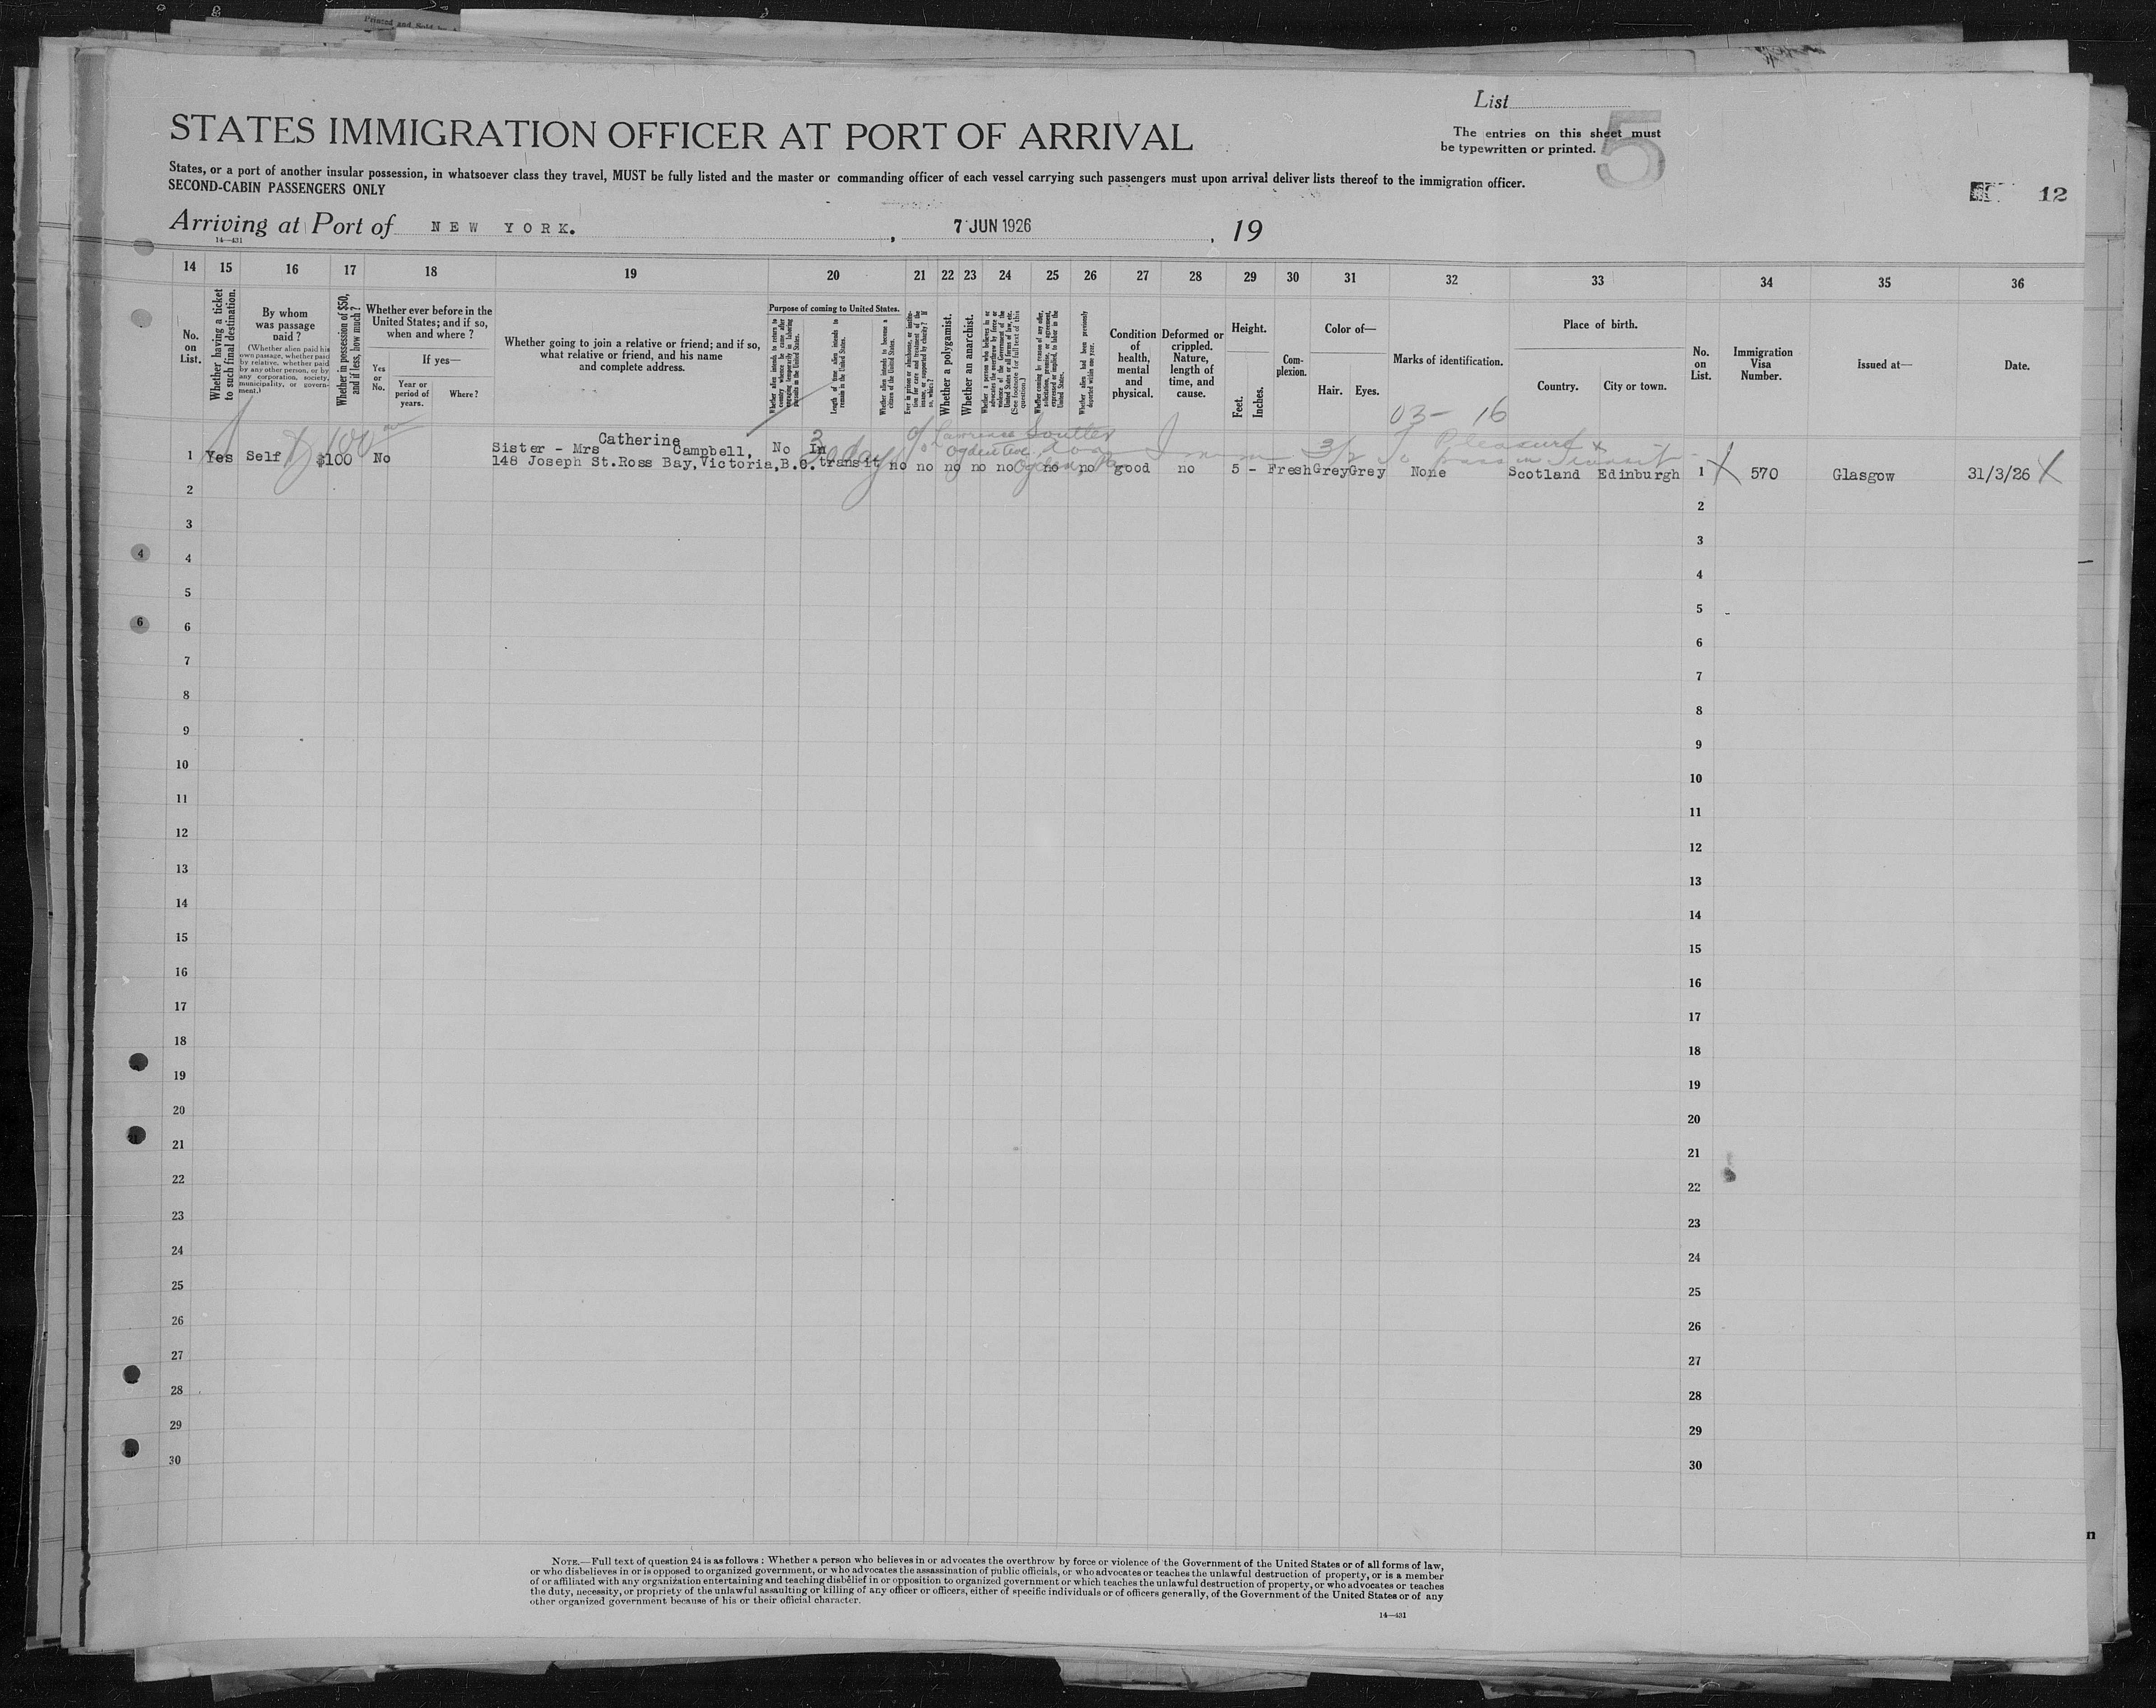 Printed and Sold by
List
STATES IMMIGRATION OFFICER AT PORT OF ARRIVAL
The entries on this sheet must
be typewritten or printed.
5
States, or a port of another insular possession, in whatsoever class they travel, MUST be fully listed and the master or commanding officer of each vessel carrying such passengers must upon arrival deliver lists thereof to the immigration officer.
SECOND-CABIN PASSENGERS ONLY
12
Arriving at Port of NEW YORK. , 7 JUN 1926 , 19
14—431
14 15 16 17 18 19 20 21 22 23 24 25 26 27 28 29 30 31 32 33 34 35 36
No. on List.
Whether having a ticket to such final destination.
By whom was passage paid?
(Whether alien paid his own passage, whether paid by relative, whether paid by any other person, or by any corporation, society, municipality, or government.)
Whether in possession of $50, and if less, how much?
Whether ever before in the United States; and if so, when and where?
Yes or No.
If yes—
Year or period of years.
Where?
Whether going to join a relative or friend; and if so, what relative or friend, and his name and complete address.
Purpose of coming to United States.
Whether alien intends to return to country whence he came after engaging temporarily in laboring pursuits in the United States.
Length of time alien intends to remain in the United States.
Whether alien intends to become a citizen of the United States.
Ever in prison or almshouse, or institution for care and treatment of the insane, or supported by charity? If so, which?
Whether a polygamist.
Whether an anarchist.
Whether a person who believes in or advocates the overthrow by force or violence of the Government of the United States or all forms of law, etc. (See footnote for full text of this question.)
Whether coming by reason of any offer, solicitation, promise, or agreement, expressed or implied, to labor in the United States.
Whether alien had been previously deported within one year.
Condition of health, mental and physical.
Deformed or crippled. Nature, length of time, and cause.
Height.
Feet. Inches.
Complexion.
Color of—
Hair. Eyes.
Marks of identification.
Place of birth.
Country. City or town.
No. on List.
Immigration Visa Number.
Issued at—
Date.
03- 16
100
3
30 days
c/o Lawrence Soutter
Ogden
Pleasure &
pass in Transit
1 Yes Self $100 No Sister - Mrs Catherine Campbell,
148 Joseph St.Ross Bay,Victoria,B.C. No In transit no no no no no no no good no 5 - Fresh Grey Grey None Scotland Edinburgh 1 570 Glasgow 31/3/26
2 2
3 3
4 4
5 5
6 6
7 7
8 8
9 9
10 10
11 11
12 12
13 13
14 14
15 15
16 16
17 17
18 18
19 19
20 20
21 21
22 22
23 23
24 24
25 25
26 26
27 27
28 28
29 29
30 30
4
6
n
NOTE.—Full text of question 24 is as follows: Whether a person who believes in or advocates the overthrow by force or violence of the Government of the United States or of all forms of law,
or who disbelieves in or is opposed to organized government, or who advocates the assassination of public officials, or who advocates or teaches the unlawful destruction of property, or is a member
of or affiliated with any organization entertaining and teaching disbelief in or opposition to organized government or which teaches the unlawful destruction of property, or who advocates or teaches
the duty, necessity, or propriety of the unlawful assaulting or killing of any officer or officers, either of specific individuals or of officers generally, of the Government of the United States or of any
other organized government because of his or their official character.
14—431